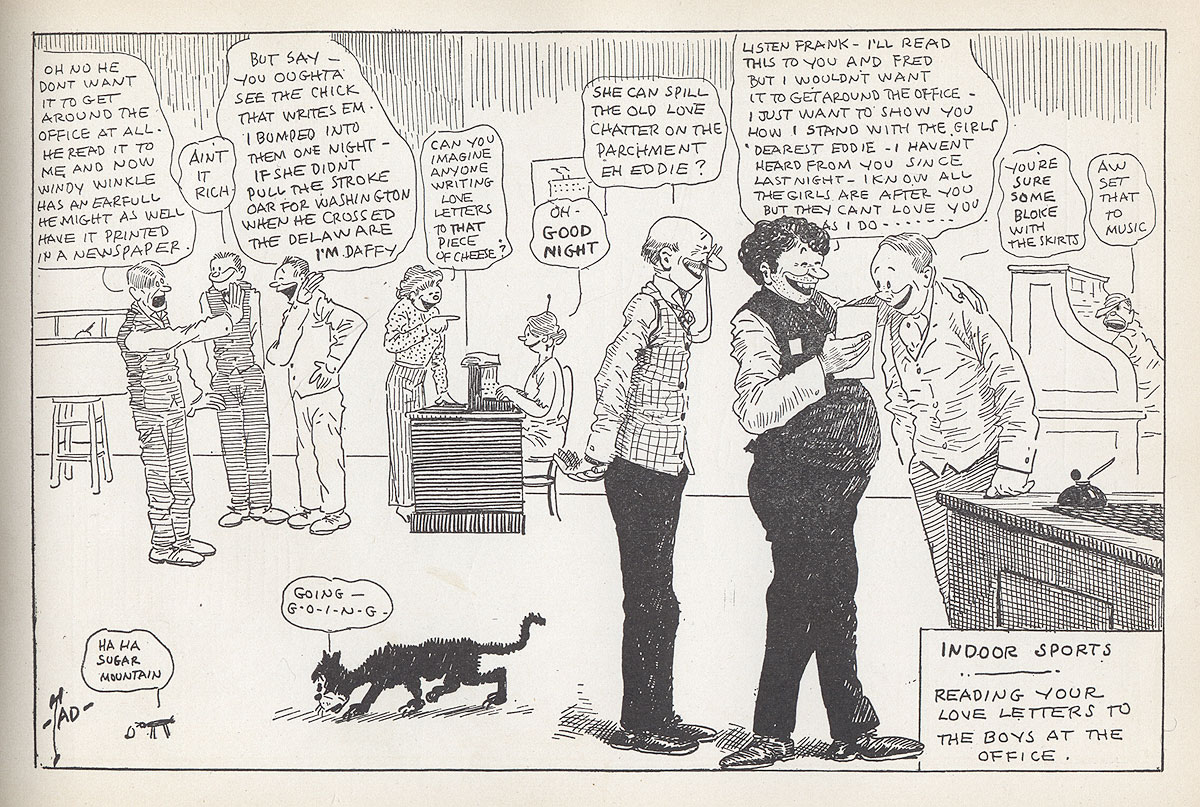 OH NO HE
DONT WANT
IT TO GET
AROUND THE
OFFICE AT ALL.
HE READ IT TO
ME AND NOW
WINDY WINKLE
HAS AN EARFULL
HE MIGHT AS WELL
HAVE IT PRINTED
IN A NEWSPAPER.
AIN'T
IT
RICH.
BUT SAY –
YOU OUGHTA
SEE THE CHICK
THAT WRITES EM.
I BUMPED INTO
THEM ONE NIGHT –
IF SHE DIDNT
PULL THE STROKE
OAR FOR WASHINGTON
WHEN HE CROSSED
THE DELAWARE
I'M DAFFY
CAN YOU
IMAGINE
ANYONE
WRITING
LOVE
LETTERS
TO THAT
PIECE
OF CHEESE?
OH-
GOOD
NIGHT
SHE CAN SPILL
THE OLD LOVE
CHATTER ON THE
PARCHMENT
EH EDDIE?
LISTEN FRANK – I'LL READ
THIS TO YOU AND FRED
BUT I WOULDNT WANT
IT TO GET AROUND THE OFFICE –
I JUST WANT TO SHOW YOU
HOW I STAND WITH THE GIRLS
'DEAREST EDDIE – I HAVENT
HEARD FROM YOU SINCE
LAST NIGHT – I KNOW ALL
THE GIRLS ARE AFTER YOU
BUT THEY CANT LOVE YOU
AS I DO - - - - - -
YOU'RE
SURE
SOME
BLOKE
WITH
THE SKIRTS
AW
SET
THAT
TO
MUSIC
GOING –
G-O-I-N-G-
HA HA
SUGAR
MOUNTAIN
-TAD-
INDOOR SPORTS
READING YOUR
LOVE LETTERS TO
THE BOYS AT THE
OFFICE.